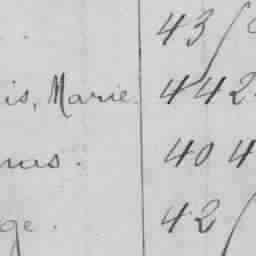 43
is, Marie. 442
nus. 404
ge. 42